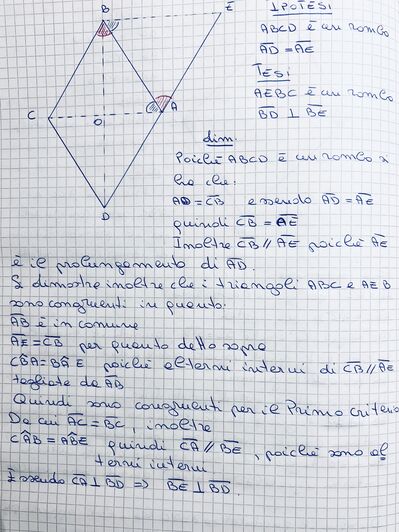 B
E
IPOTESI
ABCD è un rombo
AD = AE
TESI
AEBC è un rombo
BD ⊥ BE
C
O
A
D
dim.
Poiché ABCD è un rombo si
ha che:
AD = CB e essendo AD = AE
quindi CB = AE
Inoltre CB // AE poiché AE
è il prolungamento di AD.
Si dimostra inoltre che i triangoli ABC e AEB
sono congruenti in quanto:
AB è in comune
AE = CB per quanto detto sopra
CBA = BAE poiché alterni interni di CB // AE
tagliate da AB
Quindi sono congruenti per il Primo criterio
Da cui AC = BC, inoltre
CAB = ABE quindi CA // BE, poiché sono al
terni interni
Essendo CA ⊥ BD => BE ⊥ BD.